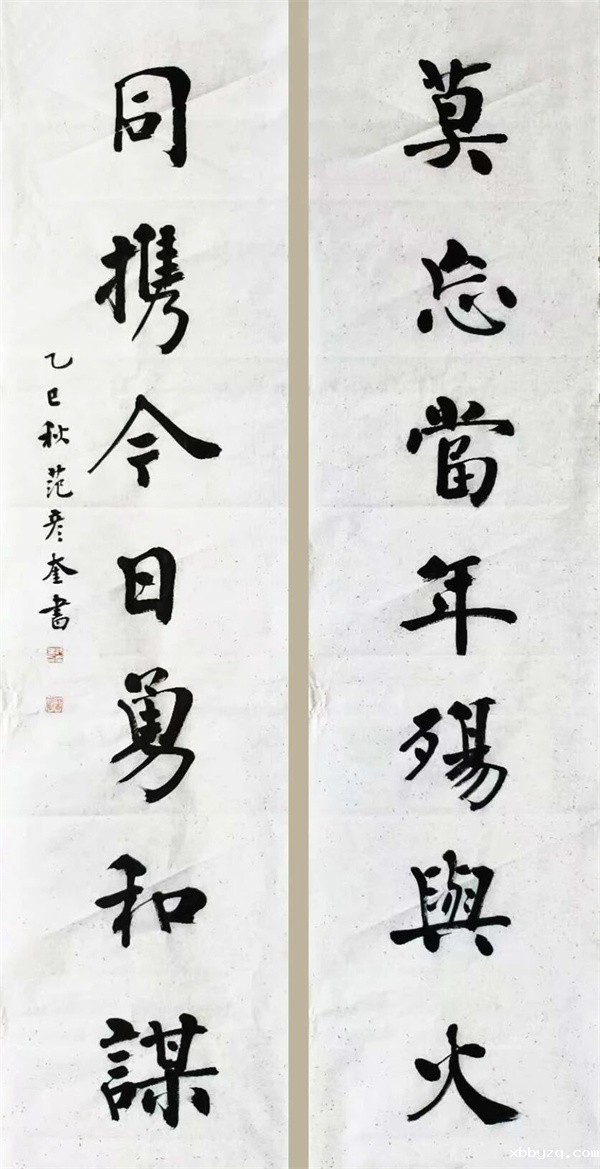 莫忘當年殤與火
同携今日勇和謀
乙巳秋范彦奎書
xbbyzq.com